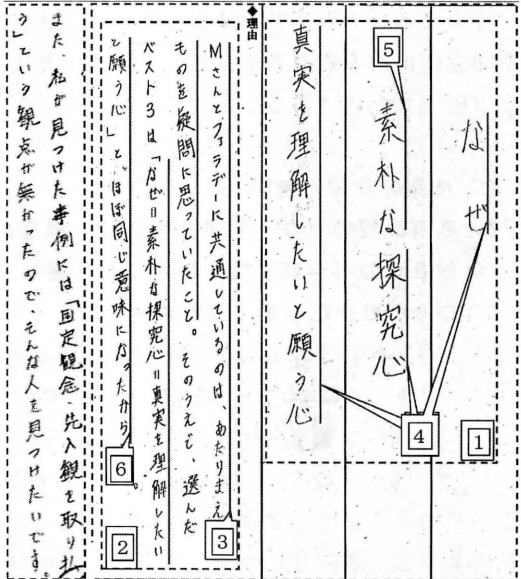 なぜ
1
素朴な探究心
5
4
真実を理解したいと願う心
◆理由
Mさんとファラデーに共通しているのは、あたりまえ
3
ものを疑問に思っていたこと。そのうえで、選んだ
ベスト3は「なぜ=素朴な探究心=真実を理解したい
と願う心」と、ほぼ同じ意味になったから。
6
2
また、私が見つけた事例には「固定観念、先入観を取り払
う」という観点が無かったので、そんな人を見つけたいです。